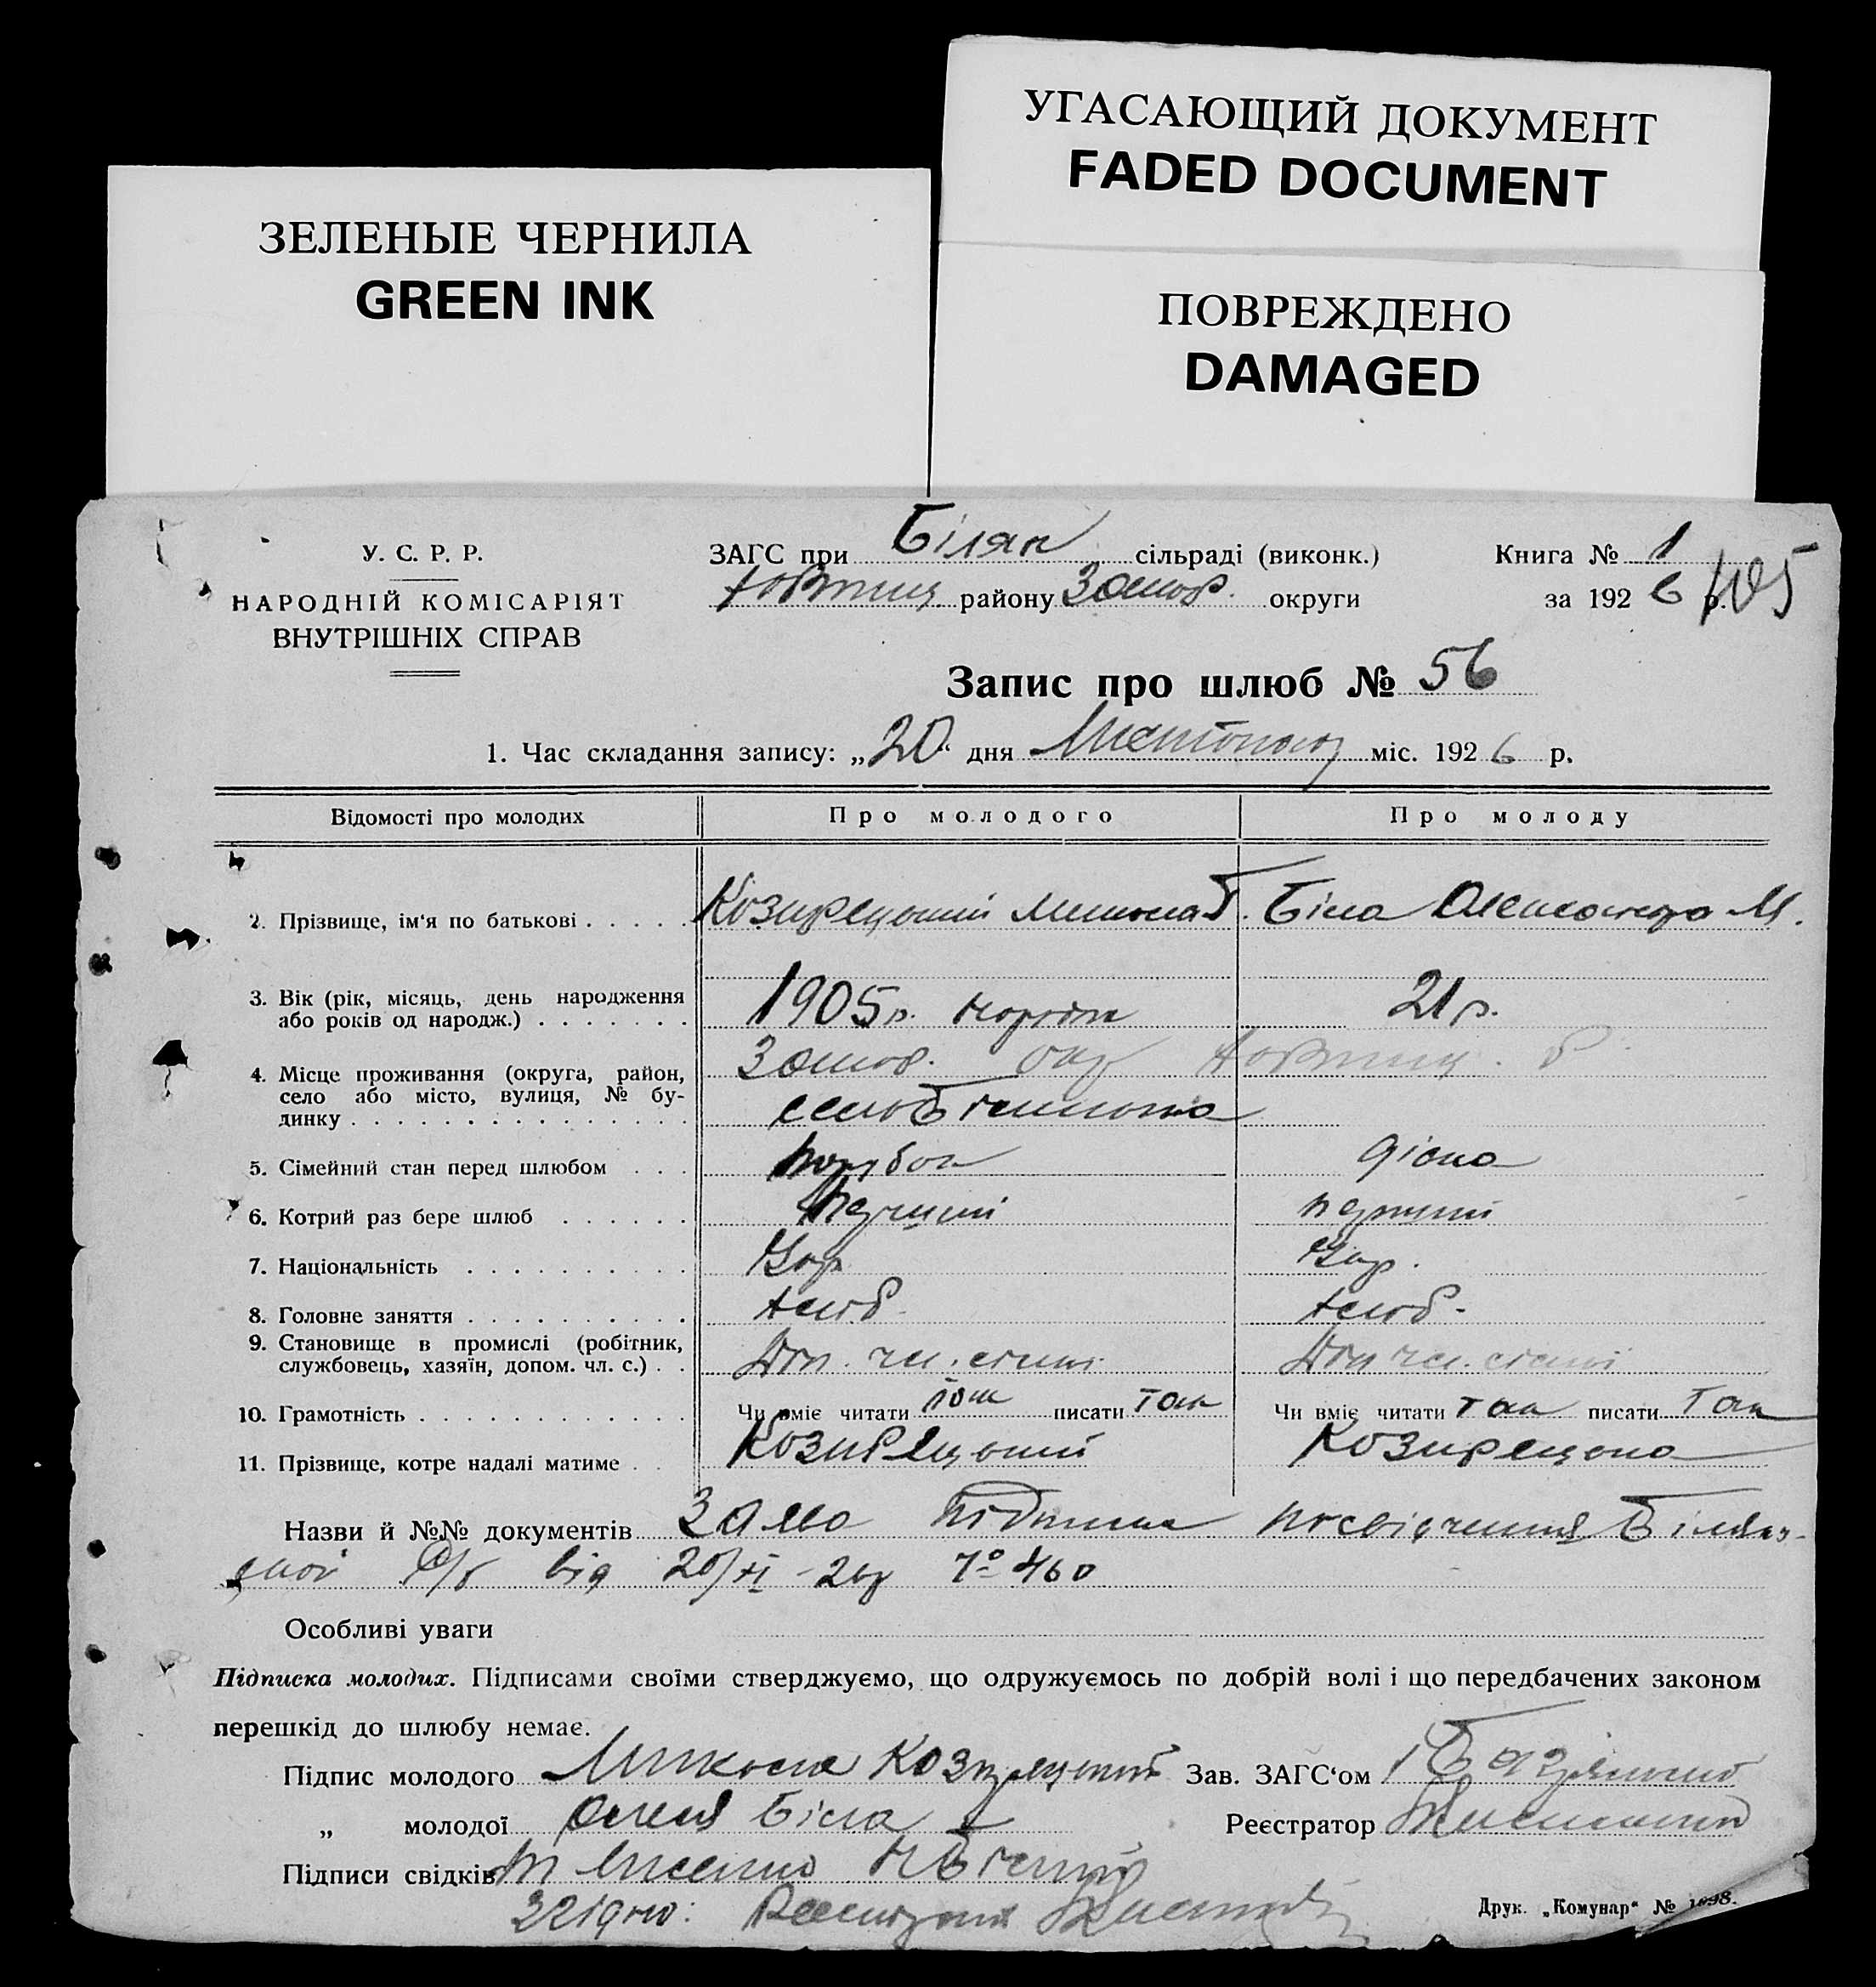 УГАСАЮЩИЙ ДОКУМЕНТ
FADED DOCUMENT
ЗЕЛЕНЫЕ ЧЕРНИЛА
GREEN INK
ПОВРЕЖДЕНО
DAMAGED
У. С. Р. Р.
НАРОДНІЙ КОМІСАРІЯТ
ВНУТРІШНІХ СПРАВ
ЗАГС при Біляк сільраді (виконк.)
району округи
Книга № 1
за 192 6 р. 105
Запис про шлюб № 56
1. Час складання запису: „20“ дня Листопада міс. 1926 р.
Відомості про молодих Про молодого Про молоду
2. Прізвище, ім'я по батькові Козирецький Микола Т. Біла Олександра М.
3. Вік (рік, місяць, день народження або років од народж.) 1905 р. 21 р.
4. Місце проживання (округа, район, село або місто, вулиця, № будинку
село
5. Сімейний стан перед шлюбом парубок дівка
6. Котрий раз бере шлюб перший перший
7. Національність Укр Укр.
8. Головне заняття хліб. хліб.
9. Становище в промислі (робітник, службовець, хазяїн, допом. чл. с.) Доп. чл. сімї Доп чл. сімї
10. Грамотність Чи вміє читати так писати так Чи вміє читати так писати так
11. Прізвище, котре надалі матиме Козирецький Козирецька
Назви й №№ документів Заява Підписка посвідчення Біляк-
ської С/р від 20/XI - 26 р № 460
Особливі уваги
Підписка молодих. Підписами своїми стверджуємо, що одружуємось по добрій волі і що передбачених законом
перешкід до шлюбу немає.
Підпис молодого Микола Козирецький Зав. ЗАГС'ом
„ молодої Олеся Біла Реєстратор
Підписи свідків
Згідно:
Друк. „Комунар“ № 1698.